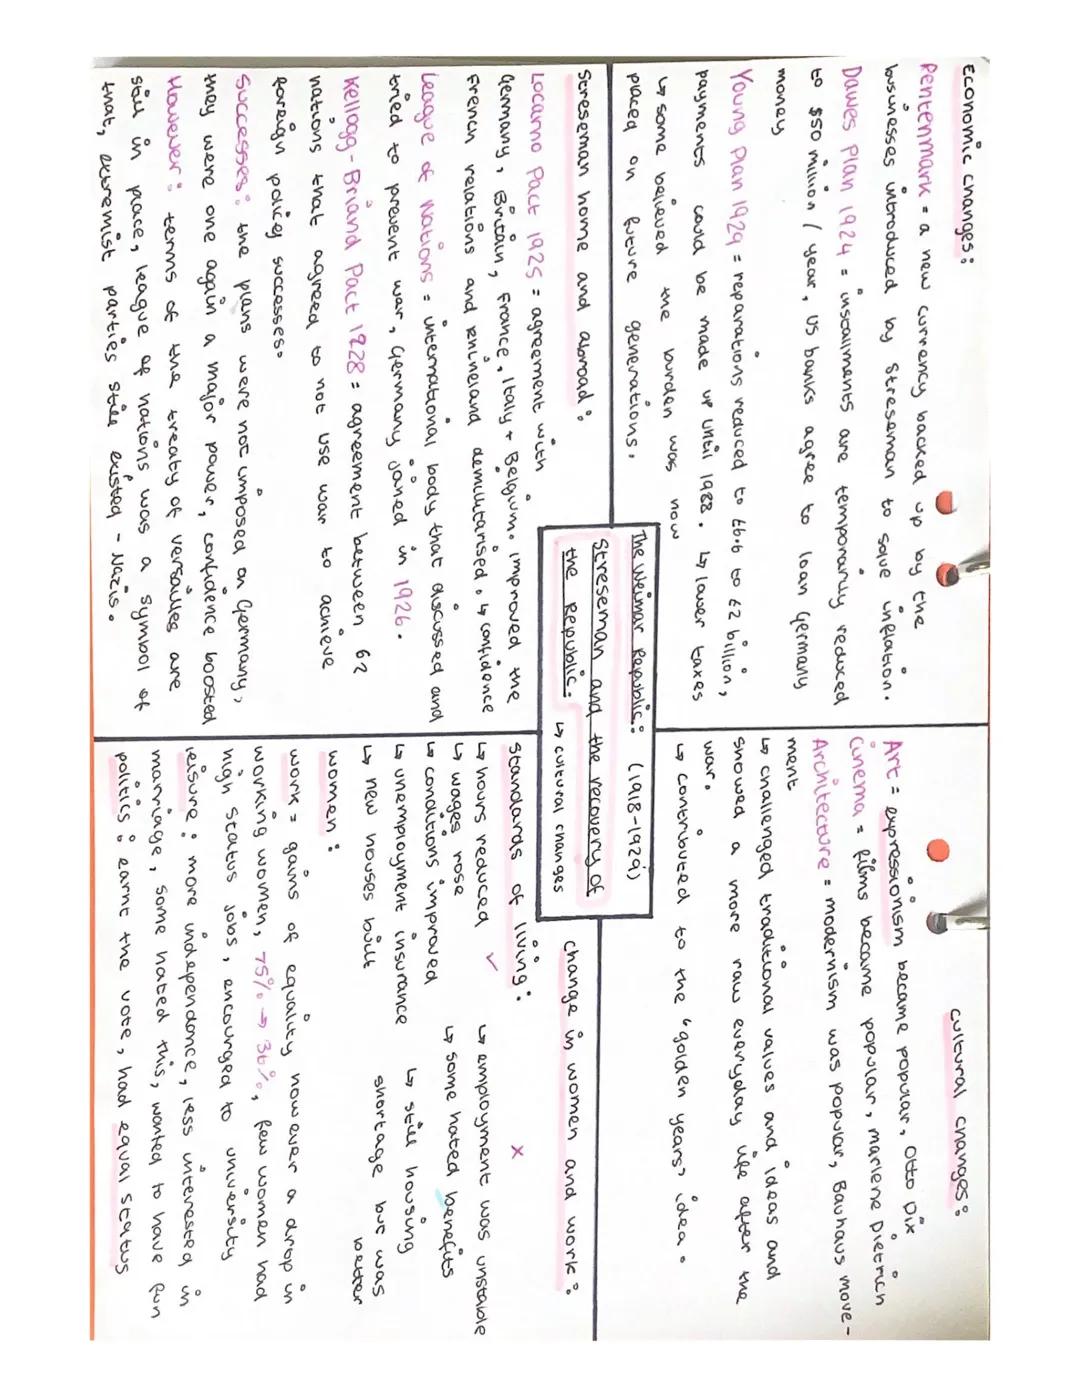 Economic changes:
Rentenmark = a new currency backed up by the
businesses introduced by Streseman to solve inflation.
Dawes Plan 1924 = installments are temporarily reduced
to $50 million / year, US banks agree to loan Germany
money
Young Plan 1929 = reparations reduced to £6.6 to £2 billion,
payments could be made up until 1988. ↳ lower taxes
↳ some believed the burden was now
placed on future generations.
Streseman home and abroad:
Locarno Pact 1925 = agreement with
Germany, Britain, France, Italy + Belgium. Improved the
French relations and Rhineland demilitarised. ↳ confidence
League of Nations = international body that discussed and
tried to prevent war, Germany joined in 1926.
Kellogg-Briand Pact 1928 = agreement between 62
nations that agreed to not use war to achieve
foreign policy successes.
Successes: the plans were not imposed on Germany,
they were one again a major power, confidence boosted
However: terms of the treaty of versailles are
still in place, league of nations was a symbol of
that, extremist parties still existed - Nazis.
The Weimar Republic: (1918-1929)
Streseman and the recovery of
the Republic. ↳ cultural changes
cultural changes:
Art = expressionism became popular, Otto Dix
Cinema = films became popular, Marlene Dietrich
Architecture = modernism was popular, Bauhaus move-
ment
↳ challenged traditional values and ideas and
showed a more raw everyday life after the
war.
↳ contributed to the "golden years" idea.
change in women and work:
standards of living:
✓
↳ hours reduced
↳ wages rose
↳ conditions improved
↳ unemployment insurance
↳ new houses built
x
↳ employment was unstable
↳ some hated benefits
↳ still housing
shortage but was
better
women:
work = gains of equality however a drop in
working women, 75% → 36%, few women had
high status jobs, encouraged to university
leisure: more independence, less interested in
marriage, some hated this, wanted to have fun
politics: earnt the vote, had equal status